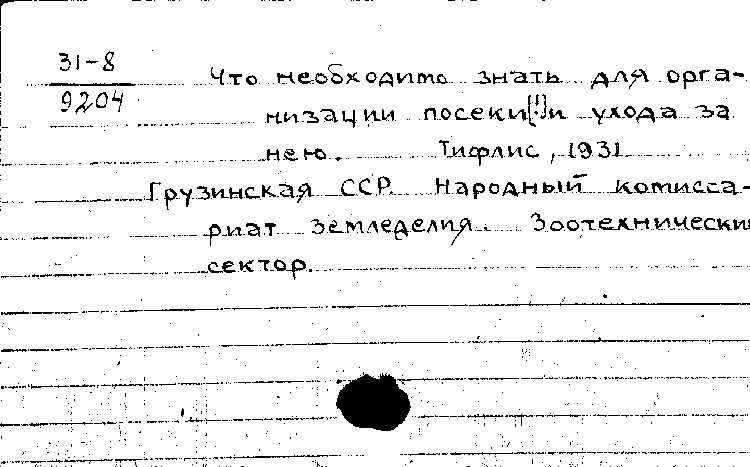 31-8
9204
Что необходимо знать для орга-
низации посеки[!]и ухода за
нею. Тифлис, 1931
Грузинская ССР. Народный комисса-
риат земледелия. Зоотехнически
сектор.